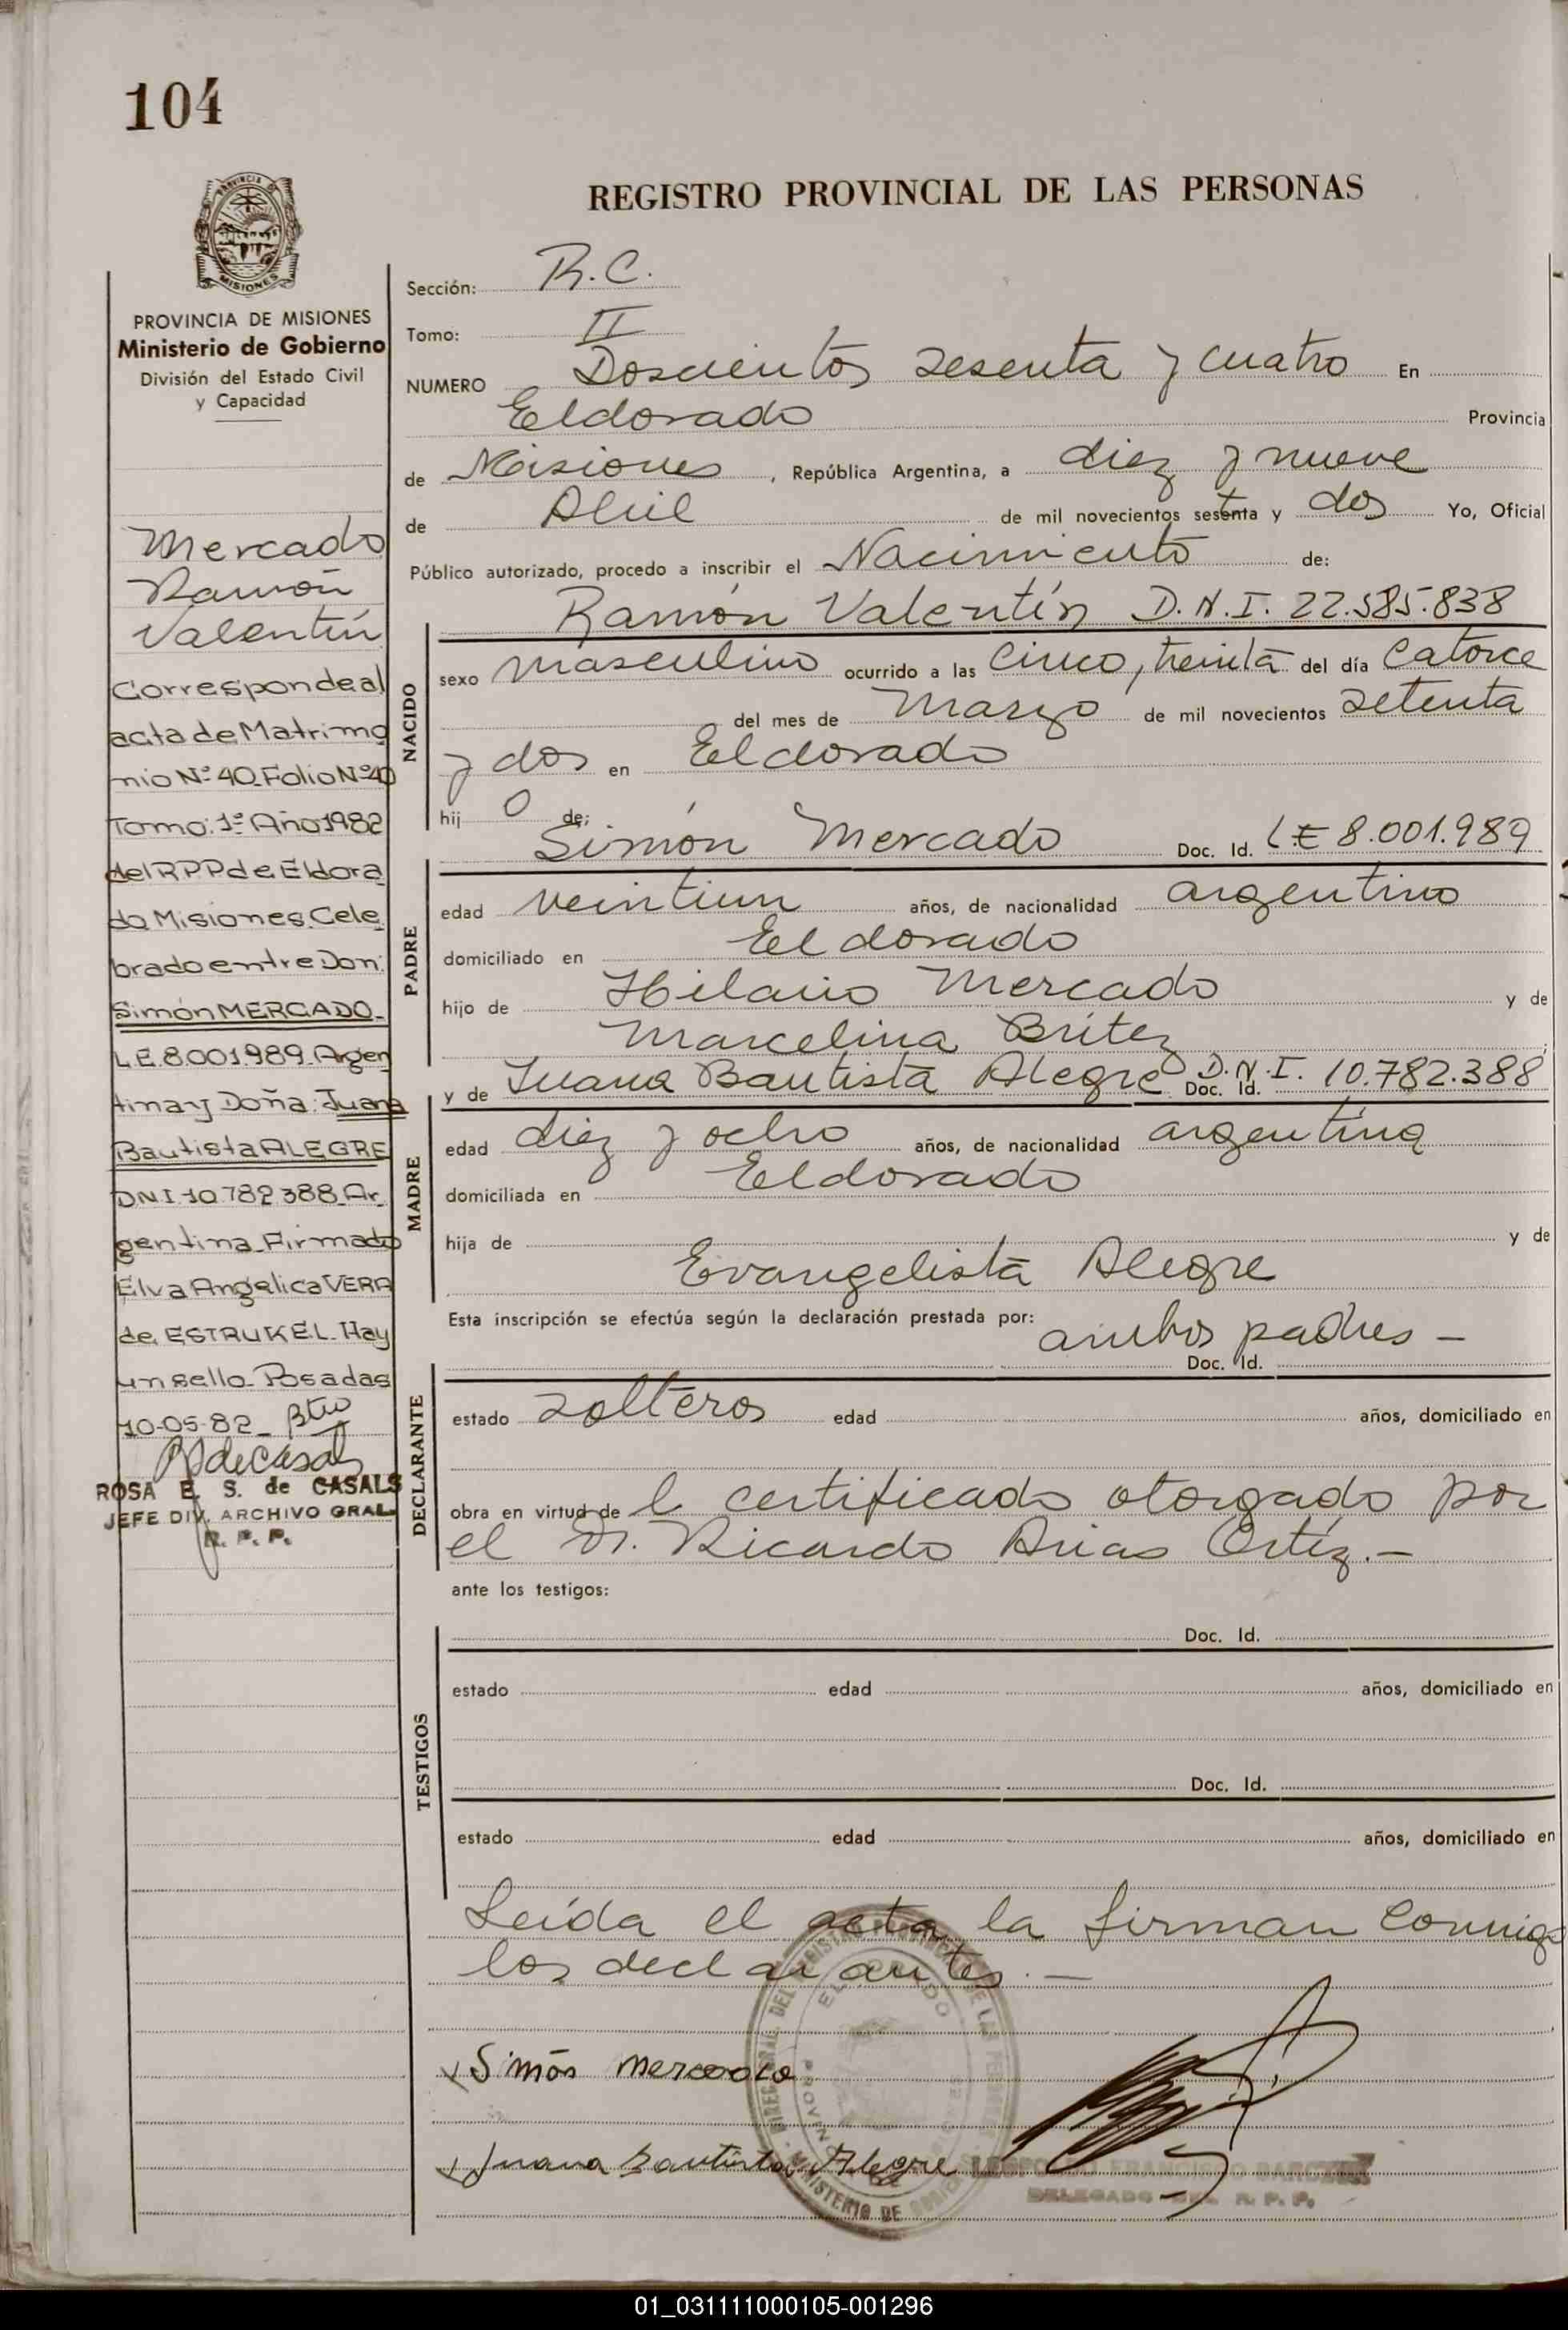 104
REGISTRO PROVINCIAL DE LAS PERSONAS
MISIONES
PROVINCIA DE MISIONES
Ministerio de Gobierno
División del Estado Civil
y Capacidad
Mercado
Ramón
Valentín
Corresponde al
acta de Matrimo
nio Nº 40 Folio Nº 40
Tomo: 1º Año 1982
del R.P.P de Eldora
do Misiones. Cele
brado entre Don:
Simón MERCADO_
L.E. 8.001.989_Argen
tina y Doña: Juana
Bautista ALEGRE
D.N.I. 10.782.388_Ar_
gentina_Firmado
Elva Angelica VERA
de ESTRUKEL. Hay
un sello_Posadas
10-05-82_
ROSA E. S. de CASALS
JEFE DIV. ARCHIVO GRAL.
R. P. P.
Sección: R.C.
Tomo: II
NUMERO Doscientos sesenta y cuatro En
Eldorado Provincia
de Misiones, República Argentina, a diez y nueve
de Abril de mil novecientos sesenta y dos Yo, Oficial
Público autorizado, procedo a inscribir el Nacimiento de:
Ramón Valentín D.N.I. 22.585.838
NACIDO
sexo masculino ocurrido a las cinco, treinta del día catorce
del mes de Marzo de mil novecientos setenta
y dos en Eldorado
hij o de:
Simón Mercado Doc. Id. LE 8.001.989
PADRE
edad veintiun años, de nacionalidad argentino
domiciliado en Eldorado
hijo de Hilario Mercado y de
Marcelina Britez
y de Juana Bautista Alegre Doc. Id. D.N.I. 10.782.388
MADRE
edad diez y ocho años, de nacionalidad argentina
domiciliada en Eldorado
hija de y de
Evangelista Alegre
Esta inscripción se efectúa según la declaración prestada por: ambos padres —
Doc. Id.
DECLARANTE
estado solteros edad años, domiciliado en
obra en virtud de l certificado otorgado por
el Dr. Ricardo Arias Ortíz.—
ante los testigos:
Doc. Id.
TESTIGOS
estado edad años, domiciliado en
Doc. Id.
estado edad años, domiciliado en
Leída el acta la firman conmigo
los declarantes.—
Simón Mercado
Juana Bautista Alegre
DELEGADO DEL R. P. P.
01_031111000105-001296